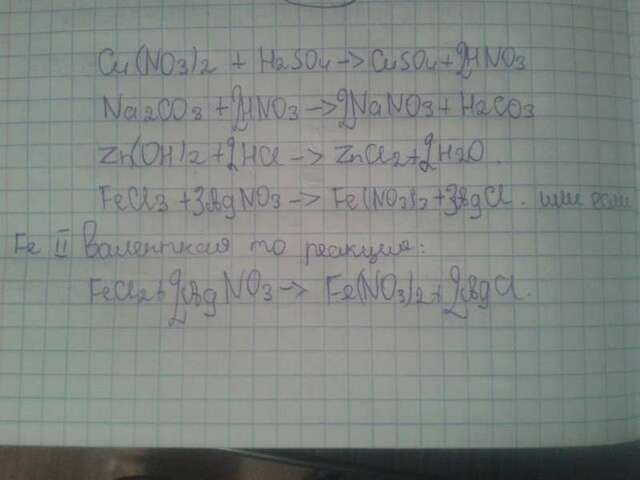 Cu(NO3)2 + H2SO4 -> CuSO4 + 2HNO3
Na2CO3 + 2HNO3 -> 2NaNO3 + H2CO3
Zn(OH)2 + 2HCl -> ZnCl2 + 2H2O.
FeCl3 + 3AgNO3 -> Fe(NO3)2 + 3AgCl. или если
Fe II валентная то реакция:
FeCl2 + 2AgNO3 -> Fe(NO3)2 + 2AgCl.